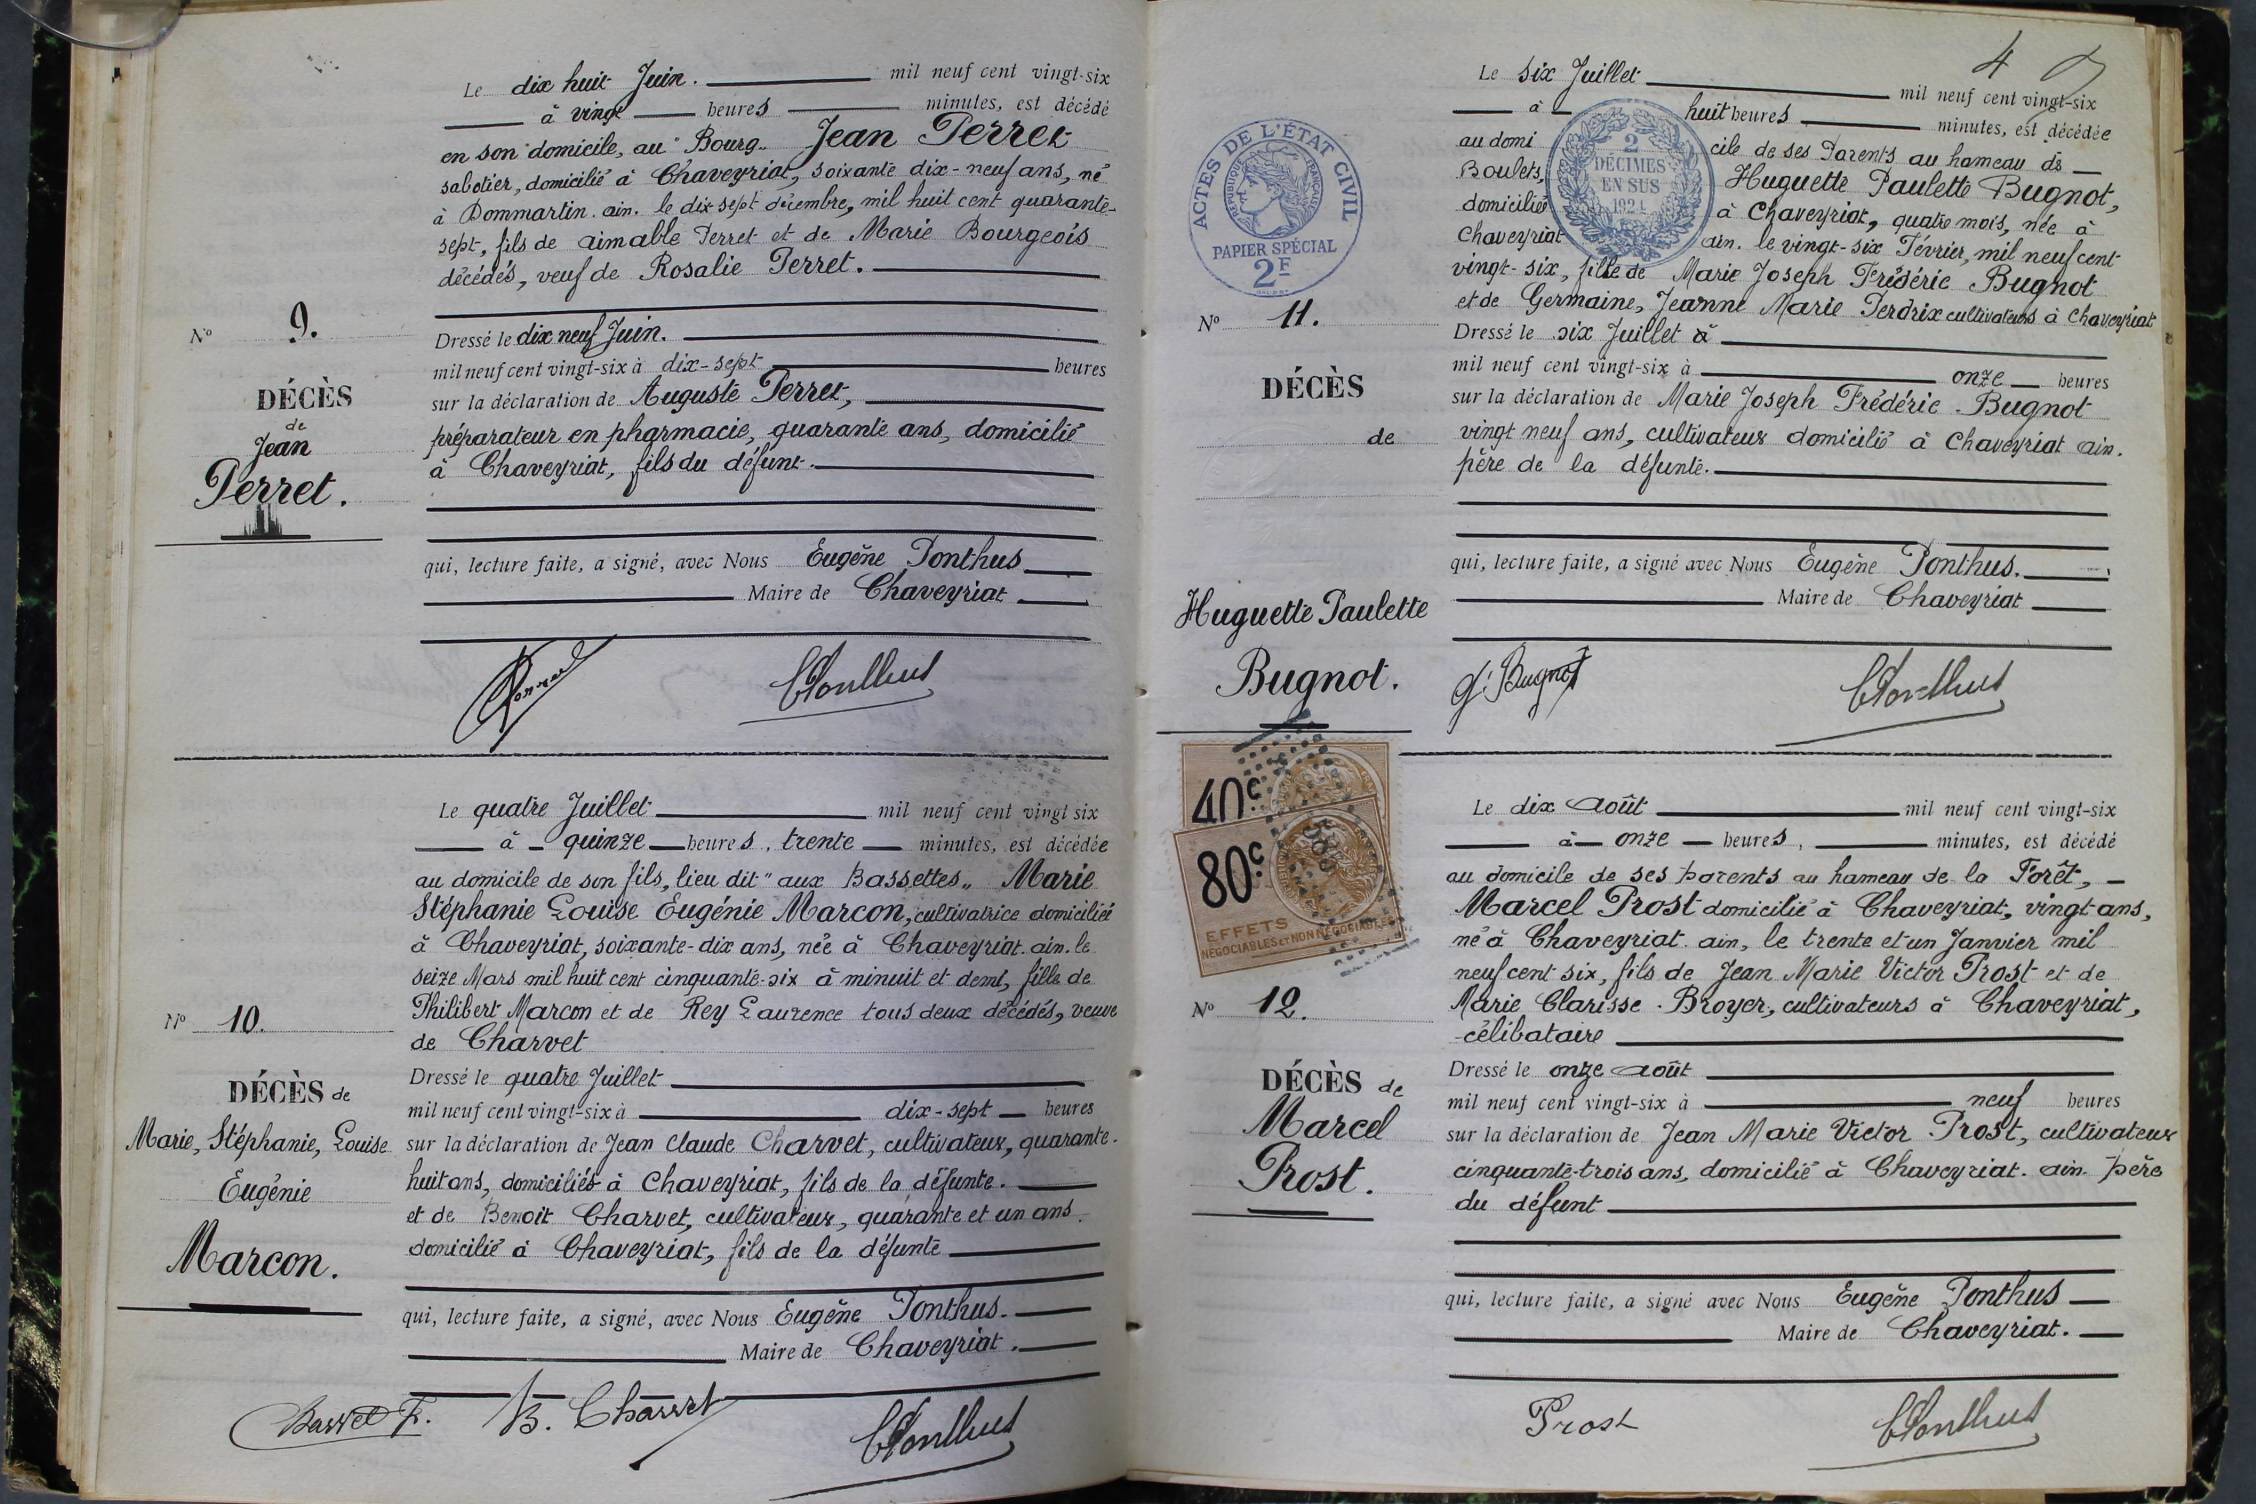 Le dix huit Juin. mil neuf cent vingt-six
à vingt heures minutes, est décédé
en son domicile, au Bourg. Jean Perret
sabotier, domicilié à Chaveyriat, soixante dix-neuf ans, né
à Dommartin. ain. le dix sept décembre, mil huit cent quarante-
sept, fils de aimable Perret et de Marie Bourgeois
décédés, veuf de Rosalie Perret.
N° 9.
Dressé le dix neuf Juin.
mil neuf cent vingt-six à dix-sept heures
DÉCÈS
de
Jean
Perret.
sur la déclaration de Auguste Perret,
préparateur en pharmacie, quarante ans, domicilié
à Chaveyriat, fils du défunt.
qui, lecture faite, a signé, avec Nous Eugène Ponthus
Maire de Chaveyriat
EPonthus
Le quatre Juillet mil neuf cent vingt six
à quinze heures, trente minutes, est décédée
au domicile de son fils, lieu dit "aux Bassettes" Marie
Stéphanie Louise Eugénie Marcon, cultivatrice domiciliée
à Chaveyriat, soixante-dix ans, née à Chaveyriat. ain. le
seize Mars mil huit cent cinquante-six à minuit et demi, fille de
Philibert Marcon et de Rey Laurence tous deux décédés, veuve
de Charvet
N° 10.
DÉCÈS de
Marie, Stéphanie, Louise
Eugénie
Marcon.
Dressé le quatre Juillet
mil neuf cent vingt-six à dix-sept heures
sur la déclaration de Jean Claude Charvet, cultivateur, quarante-
huit ans, domiciliés à Chaveyriat, fils de la défunte.
et de Benoit Charvet, cultivateur, quarante et un ans.
domicilié à Chaveyriat, fils de la défunte
qui, lecture faite, a signé, avec Nous Eugène Ponthus.
Maire de Chaveyriat.
B. Charvet
EPonthus
4
Le six Juillet mil neuf cent vingt-six
à huit heures minutes, est décédée
au domi cile de ses Parents au hameau des
Boulets, Huguette Paulette Bugnot,
domiciliée à Chaveyriat, quatre mois, née à
Chaveyriat ain. le vingt-six Février, mil neuf cent
vingt-six, fille de Marie Joseph Frédéric Bugnot
et de Germaine, Jeanne Marie Perdrix cultivateurs à Chaveyriat
ACTES DE L'ÉTAT CIVIL
RÉPUBLIQUE FRANÇAISE
PAPIER SPÉCIAL
2F
2
DÉCIMES
EN SUS
1924
N° 11.
DÉCÈS
de
Huguette Paulette
Bugnot.
Dressé le six Juillet à
mil neuf cent vingt-six à onze heures
sur la déclaration de Marie Joseph Frédéric Bugnot
vingt neuf ans, cultivateur domicilié à Chaveyriat ain.
père de la défunte.
qui, lecture faite, a signé avec Nous Eugène Ponthus.
Maire de Chaveyriat
Bugnot
EPonthus
40c
80c
EFFETS
NÉGOCIABLES ET NON NÉGOCIABLES
Le dix août mil neuf cent vingt-six
à onze heures, minutes, est décédé
au domicile de ses parents au hameau de la Forêt,
Marcel Prost domicilié à Chaveyriat, vingt ans,
né à Chaveyriat. ain, le trente et un Janvier mil
neuf cent six, fils de Jean Marie Victor Prost et de
Marie Clarisse Broyer, cultivateurs à Chaveyriat,
célibataire
N° 12.
DÉCÈS de
Marcel
Prost.
Dressé le onze août
mil neuf cent vingt-six à neuf heures
sur la déclaration de Jean Marie Victor Prost, cultivateur
cinquante-trois ans, domicilié à Chaveyriat. ain. père
du défunt
qui, lecture faite, a signé avec Nous Eugène Ponthus
Maire de Chaveyriat.
Prost
EPonthus